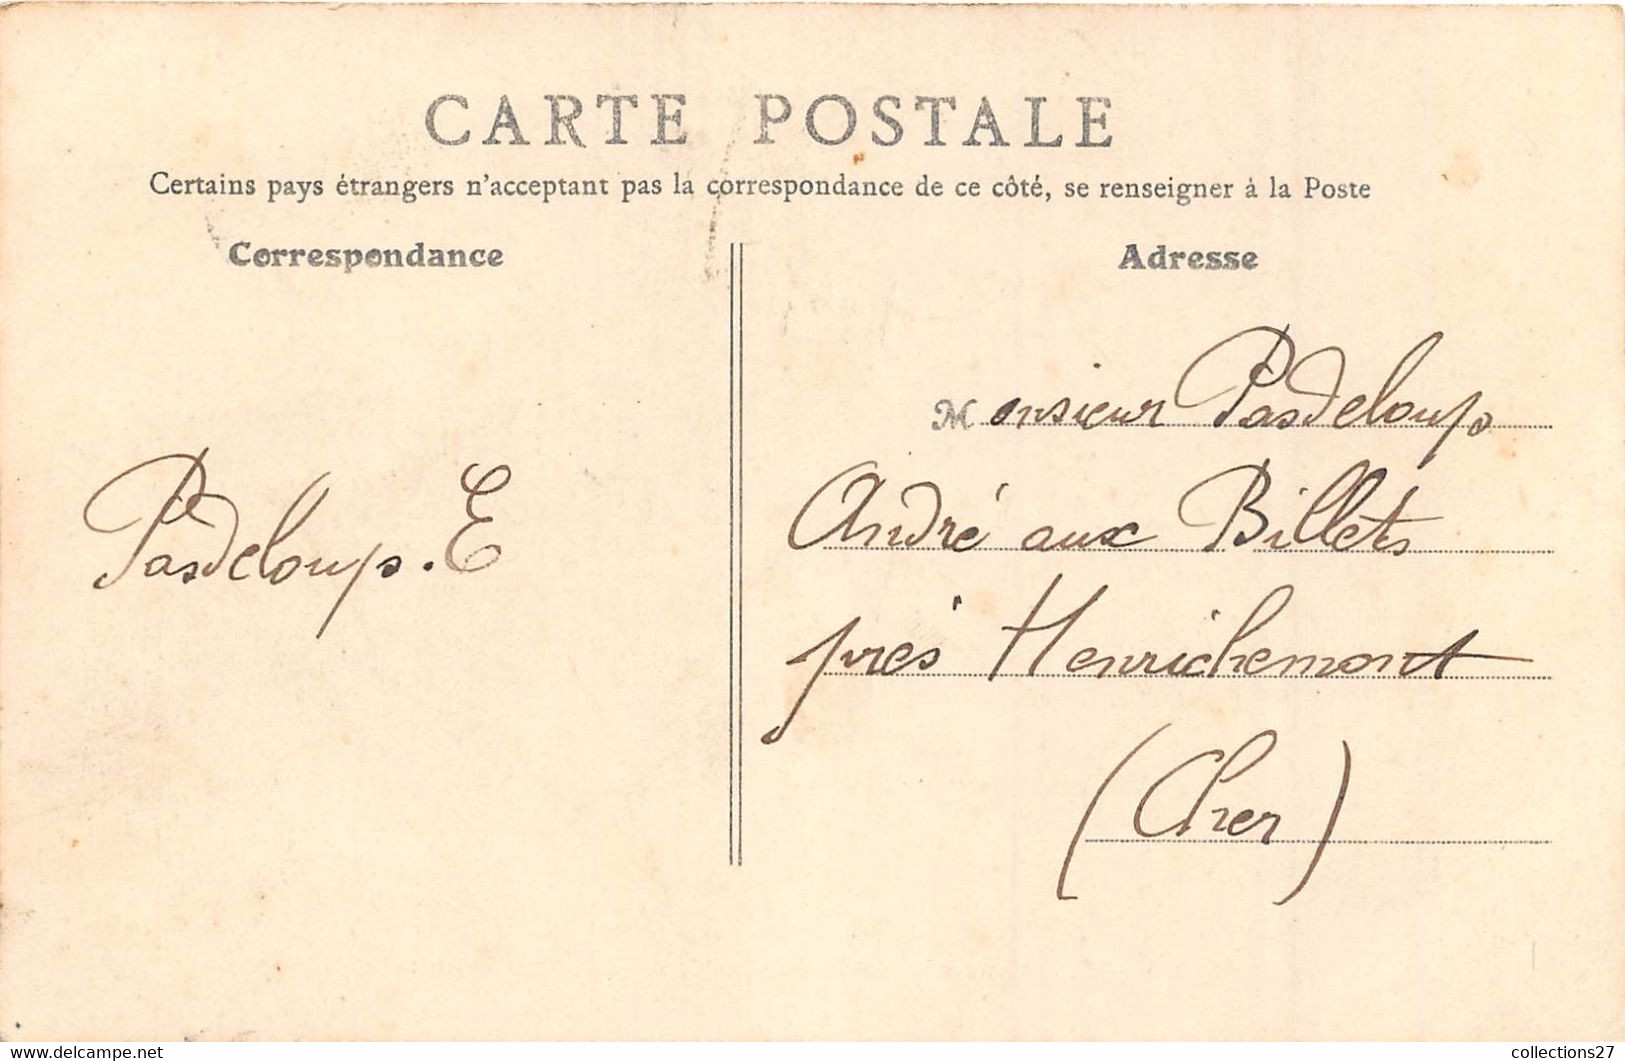 CARTE POSTALE
Certains pays étrangers n'acceptant pas la correspondance de ce côté, se renseigner à la Poste
Correspondance
Pasdeloup. E
Adresse
Monsieur Pasdeloup
André aux Billets
près Henrichemont
(Cher)
collections27